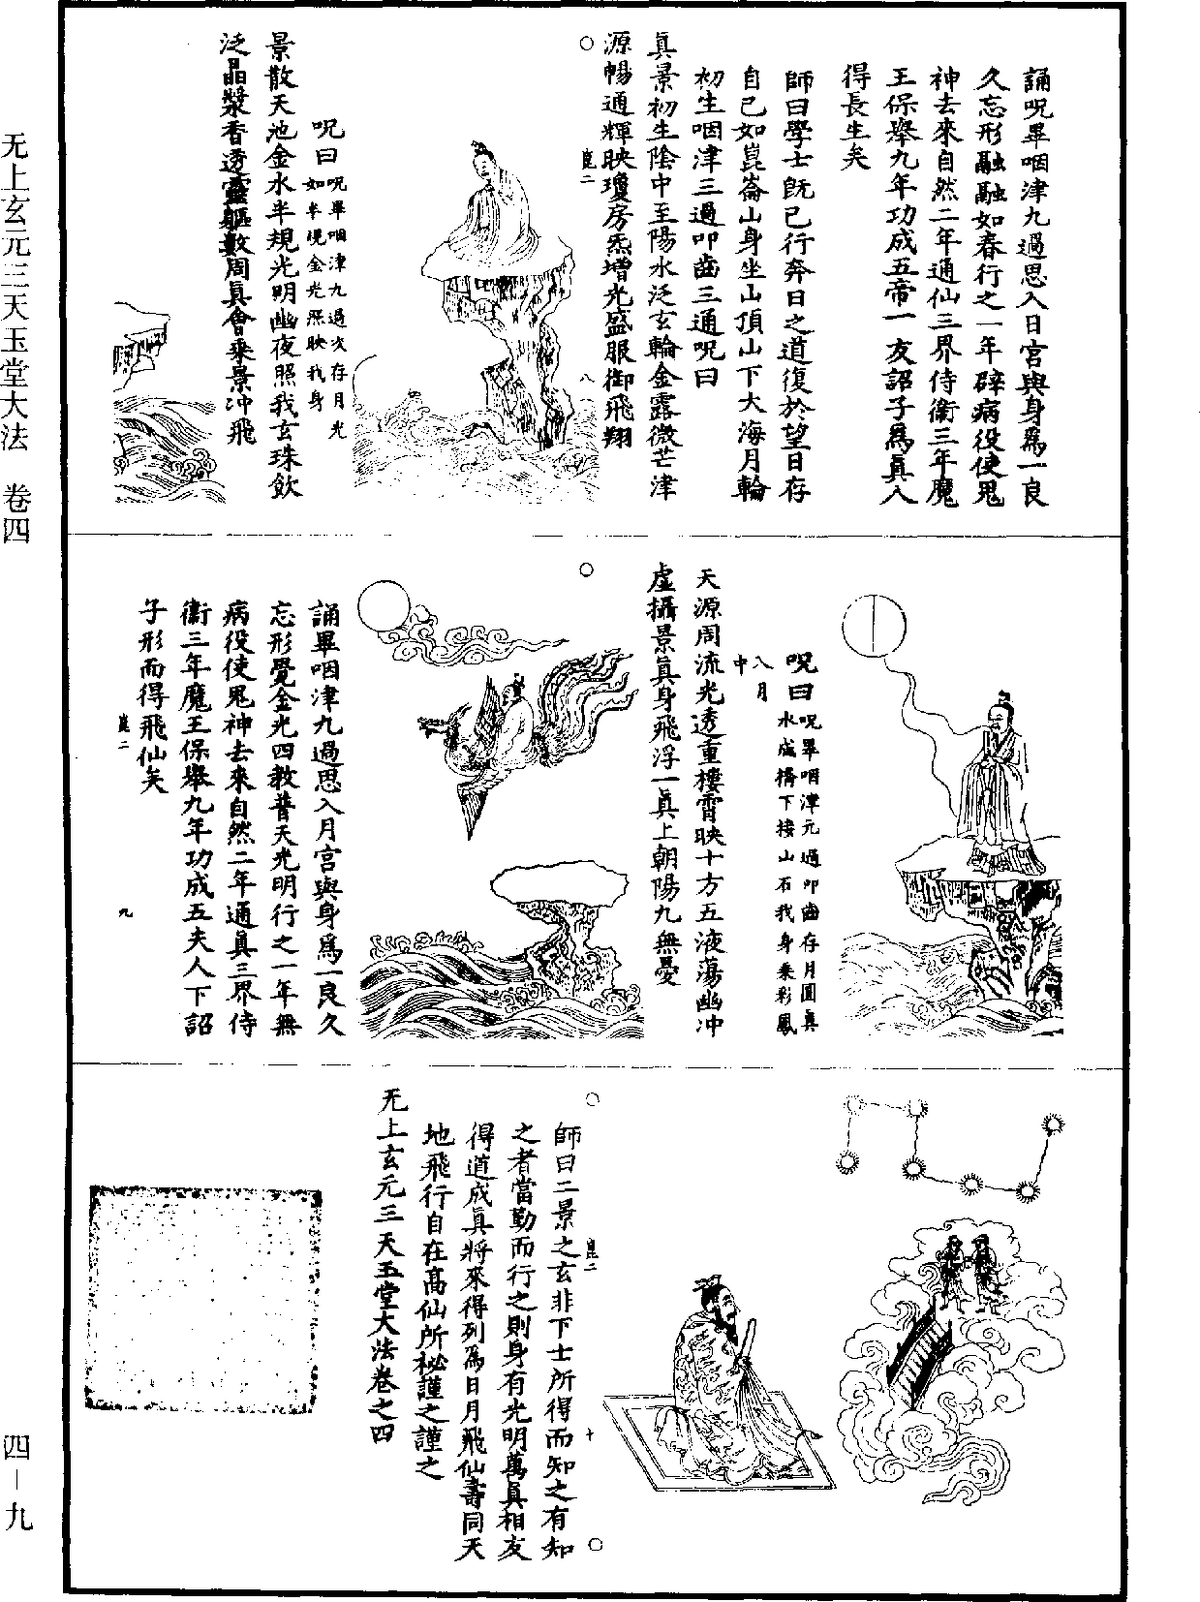 誦呪畢咽津九過思入日宮與身爲一良
久忘形融融如春行之一年辟病役使鬼
神去來自然二年通仙三界侍衛三年魔
王保舉九年功成五帝一友詔子爲真人
得長生矣
師曰學士旣已行奔日之道復於望日存
自己如崑崙山身坐山頂山下大海月輪
初生咽津三過叩齒三通呪曰
真景初生陰中至陽水泛玄輪金露微芒津
源暢通輝映瓊房炁增光盛服御飛翔
崑二
八
呪曰呪畢咽津九過次存月光
如半規金光照映我身
景散天池金水半規光明幽夜照我玄珠飲
泛晶漿香透靈軀數周真會乘景沖飛
呪曰呪畢咽津元過叩齒存月圓真
水成橋下接山石我身乘彩鳳
八月
中
天源周流光透重樓霄映十方五液蕩幽冲
虛攝景真身飛浮一真上朝陽九無憂
誦畢咽津九過思入月宮與身爲一良久
忘形覺金光四教普天光明行之一年無
病役使鬼神去來自然二年通真三界侍
衛三年魔王保舉九年功成五夫人下詔
子形而得飛仙矣
崑二
九
師曰二景之玄非下士所得而知之有知
之者當勤而行之則身有光明萬真相友
得道成真將來得列爲日月飛仙壽同天
地飛行自在高仙所祕謹之謹之
崑二
十
无上玄元三天玉堂大法卷之四
无上玄元三天玉堂大法 卷四
四－九